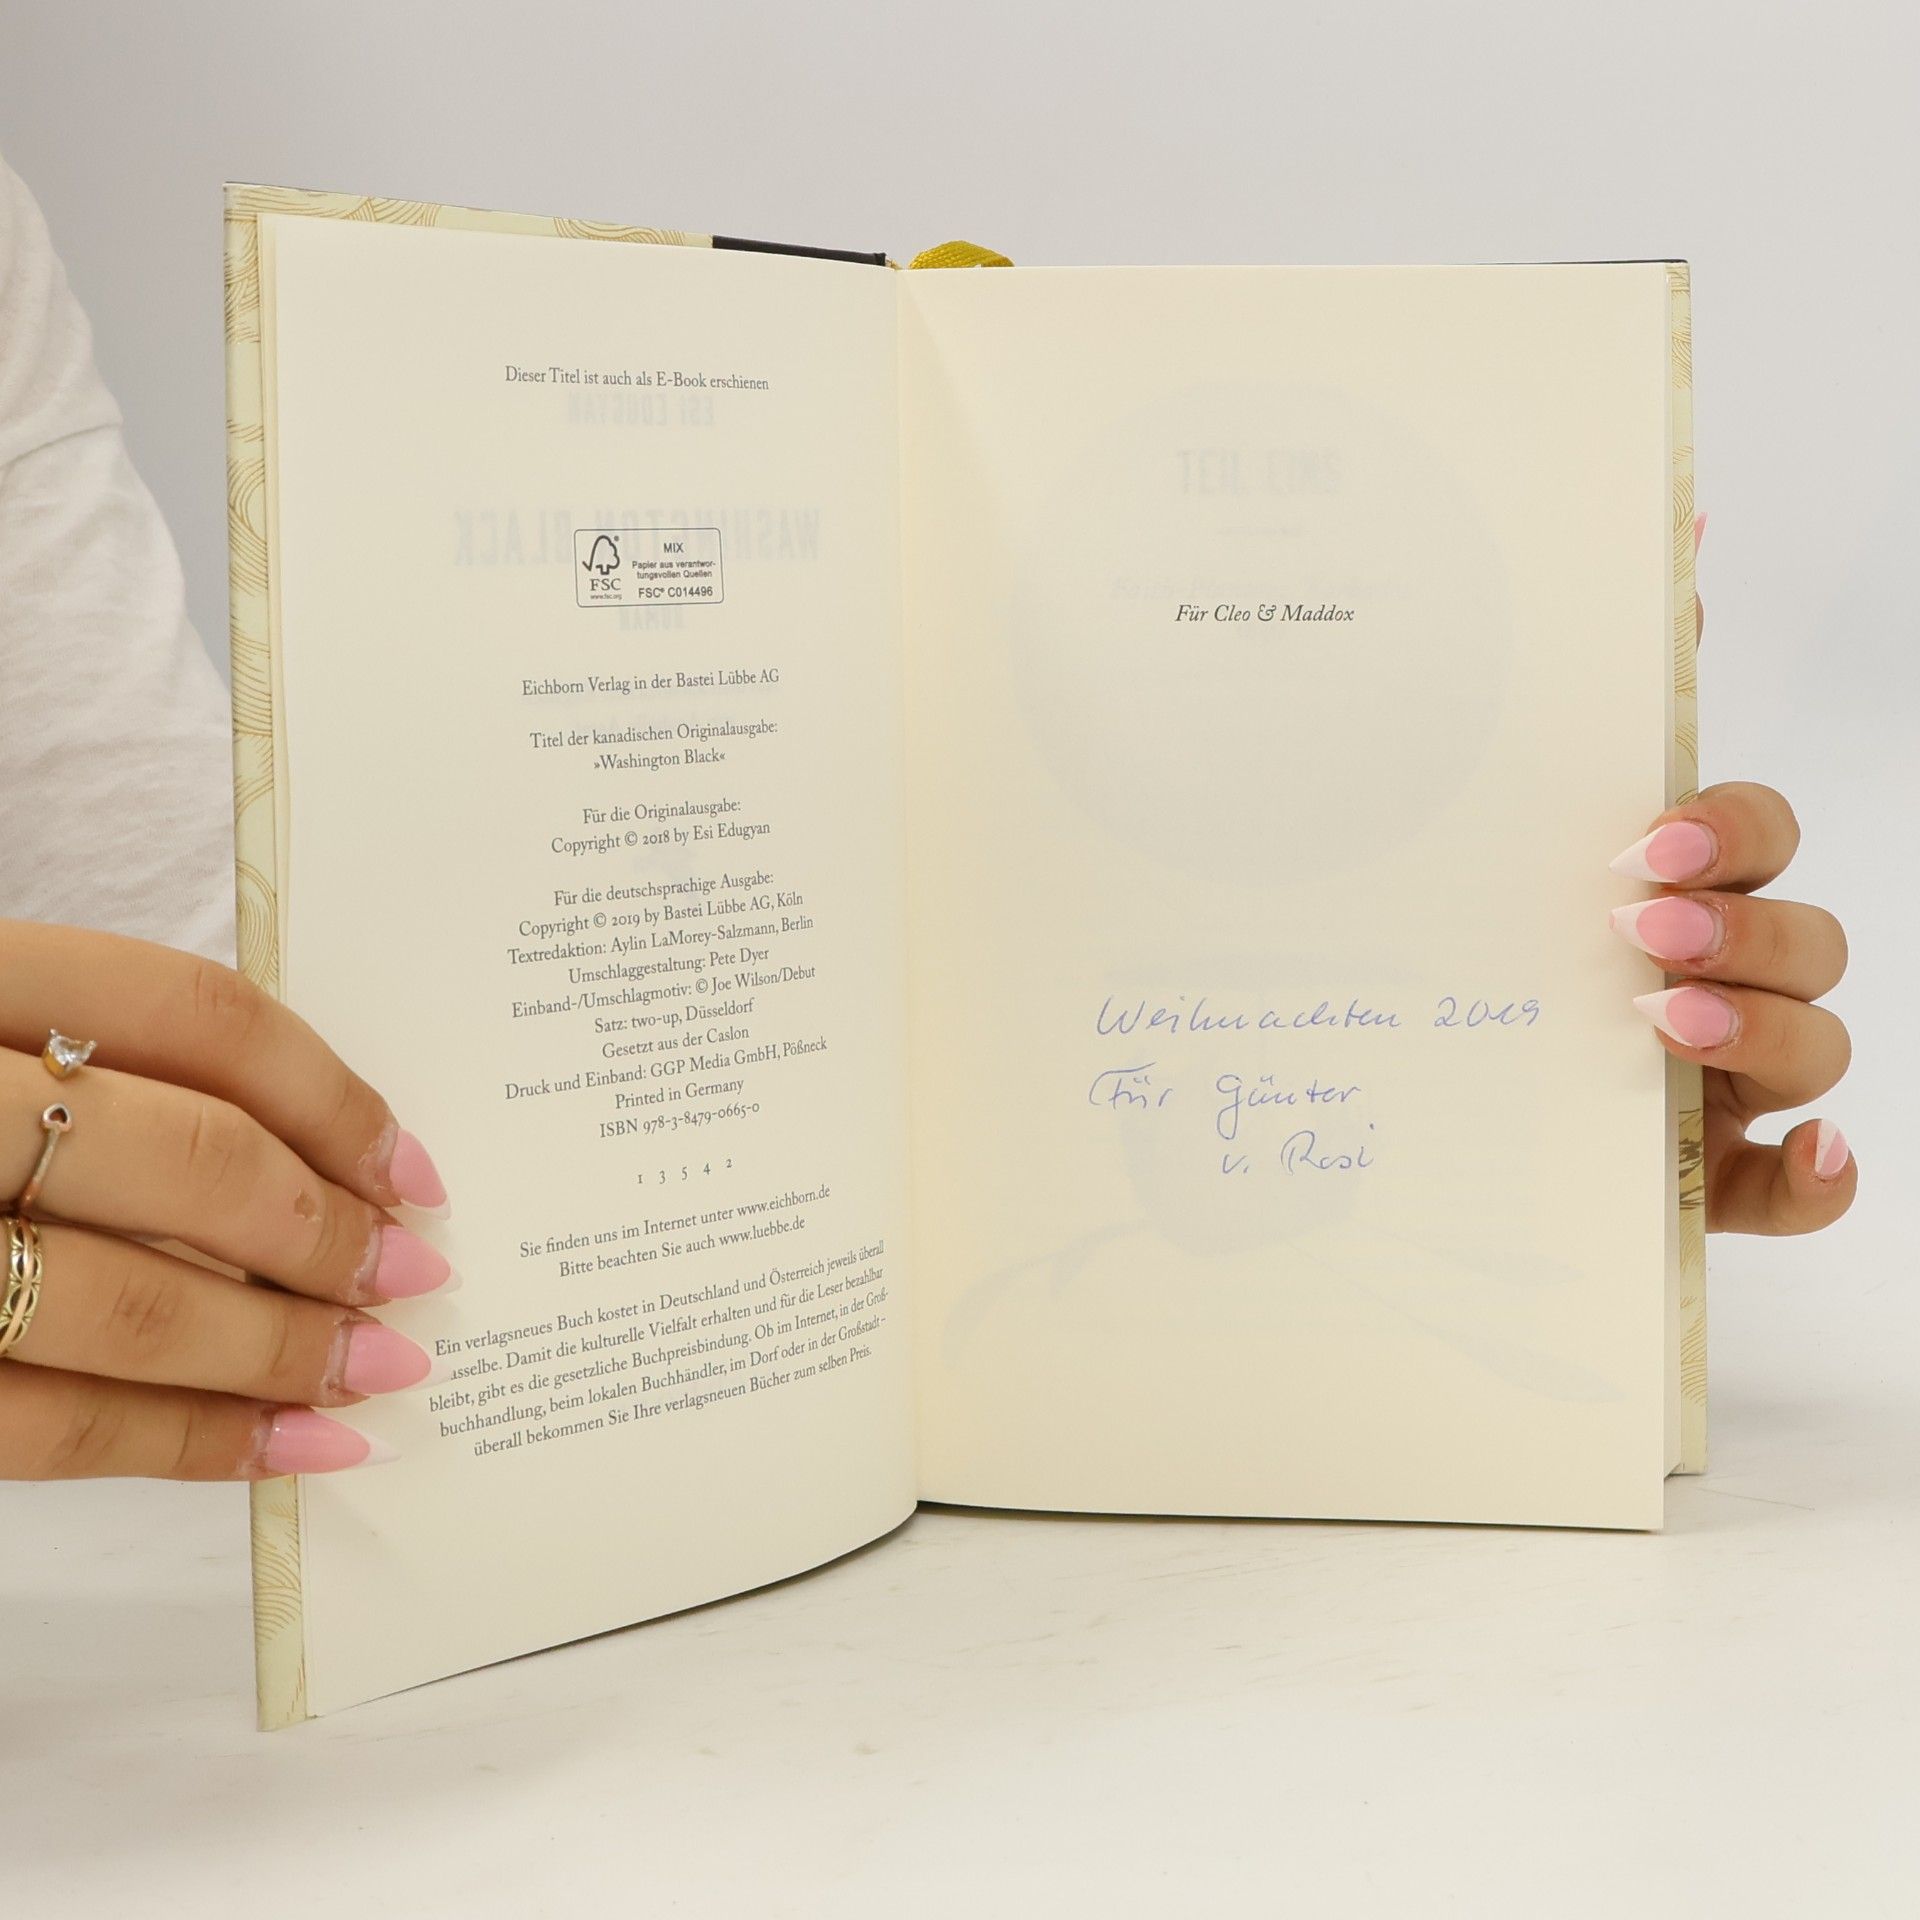 Dieser Titel ist auch als E-Book erschienen
ESI EDUGYAN
WASHINGTON BLACK
ROMAN
FSC
www.fsc.org
MIX
Papier aus verantwor-
tungsvollen Quellen
FSC® C014496
Eichborn Verlag in der Bastei Lübbe AG
Titel der kanadischen Originalausgabe:
»Washington Black«
Für die Originalausgabe:
Copyright © 2018 by Esi Edugyan
Für die deutschsprachige Ausgabe:
Copyright © 2019 by Bastei Lübbe AG, Köln
Textredaktion: Aylin LaMorey-Salzmann, Berlin
Umschlaggestaltung: Pete Dyer
Einband-/Umschlagmotiv: © Joe Wilson/Debut
Satz: two-up, Düsseldorf
Gesetzt aus der Caslon
Druck und Einband: GGP Media GmbH, Pößneck
Printed in Germany
ISBN 978-3-8479-0665-0
1 3 5 4 2
Sie finden uns im Internet unter www.eichborn.de
Bitte beachten Sie auch www.luebbe.de
Ein verlagsneues Buch kostet in Deutschland und Österreich jeweils überall
asselbe. Damit die kulturelle Vielfalt erhalten und für die Leser bezahlbar
bleibt, gibt es die gesetzliche Buchpreisbindung. Ob im Internet, in der Groß-
buchhandlung, beim lokalen Buchhändler, im Dorf oder in der Großstadt –
überall bekommen Sie Ihre verlagsneuen Bücher zum selben Preis.
TEIL EINS
Für Cleo & Maddox
Weihnachten 2019
Für Günter
v. Rosi